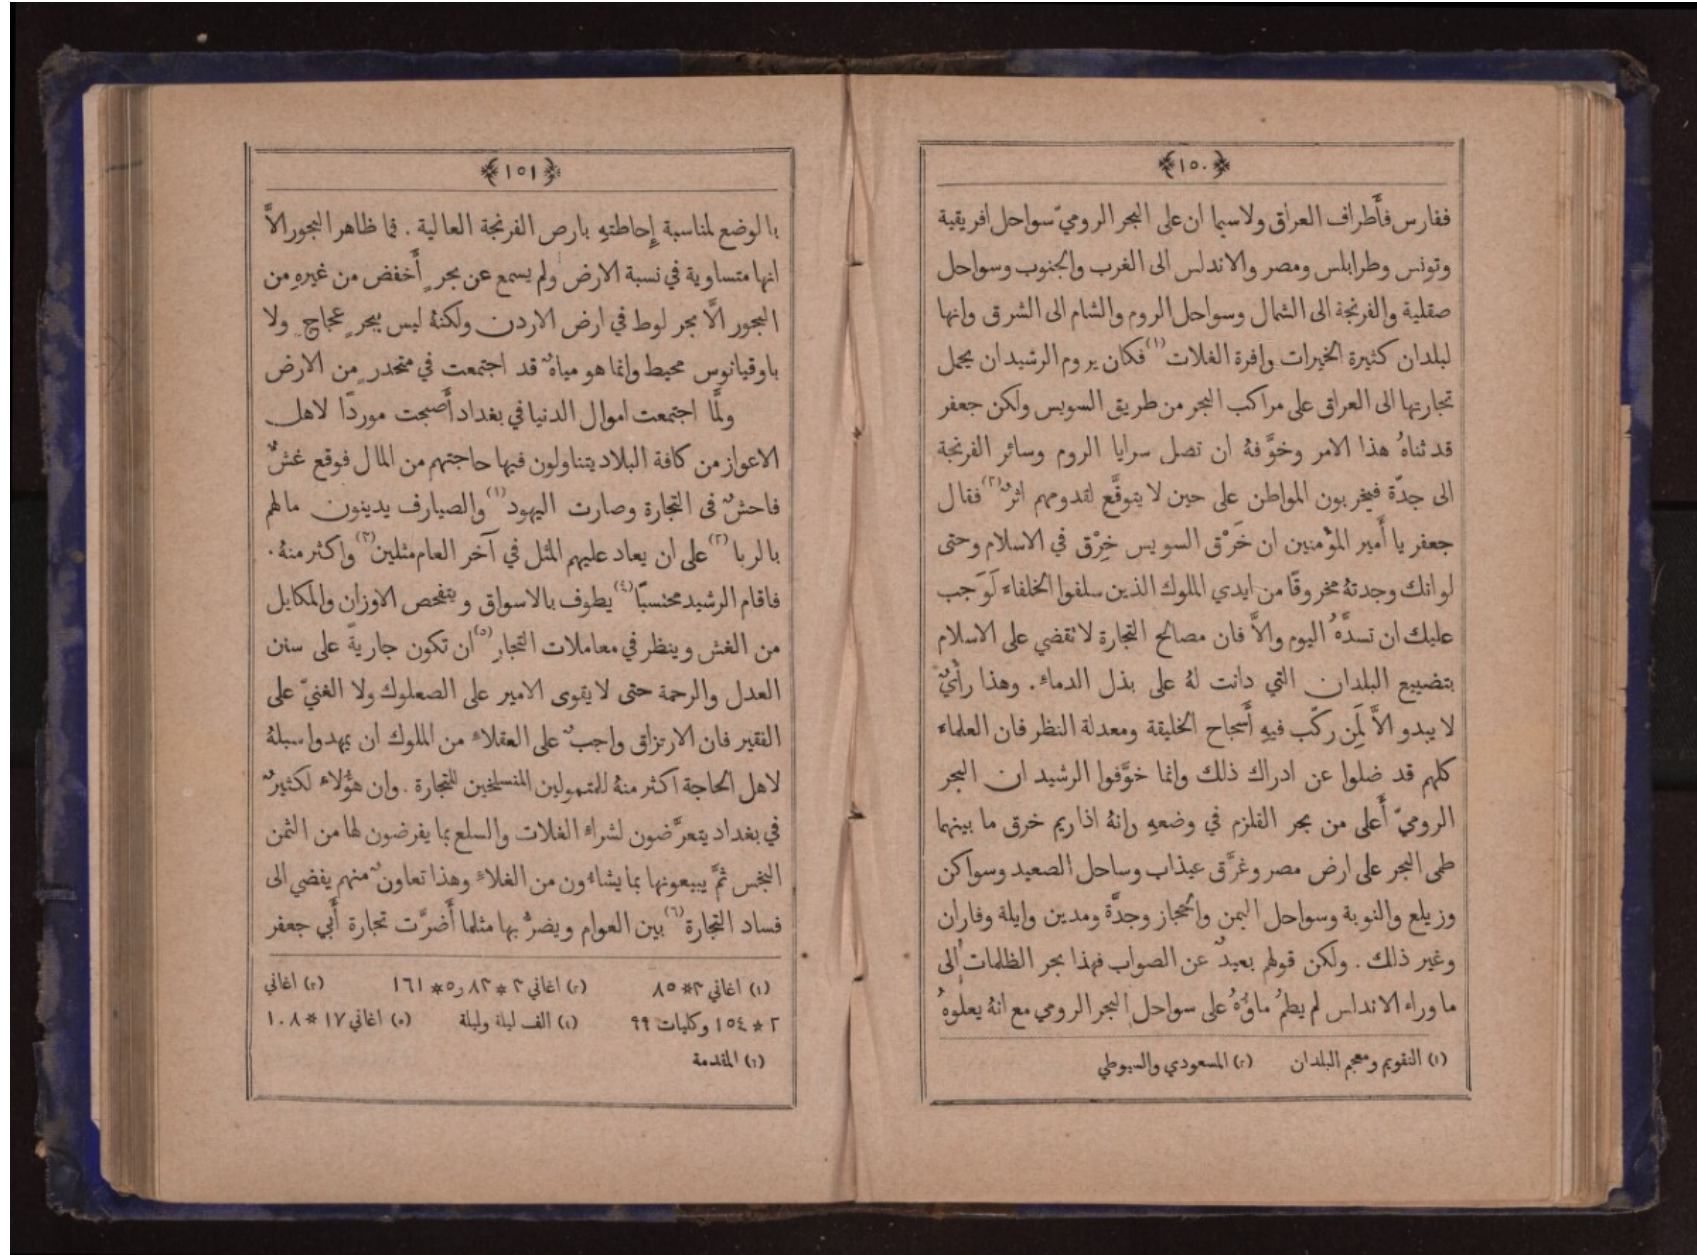 ﴿١٥٠﴾
ففارس فأَطراف العراق ولاسيما ان على البحر الروميّ سواحل افريقية
وتونس وطرابلس ومصر والاندلس الى الغرب والجنوب وسواحل
صقلية والفرنجة الى الشمال وسواحل الروم والشام الى الشرق وانها
لبلدان كثيرة الخيرات وافرة الغلات(١) فكان يروم الرشيد ان يجمل
تجارتها الى العراق على مراكب البحر من طريق السويس ولكن جعفر
قد ثناهُ هذا الامر وخوَّفهُ ان تصل سرايا الروم وسائر الفرنجة
الى جدّة فيخربون المواطن على حين لا يتوقَّع لقدومهم اثرٌ(٢) فقال
جعفر يا أَمير المؤمنين ان خَرْق السويس خِرْق في الاسلام وحتى
لو انك وجدتهُ مخروقًا من ايدي الملوك الذين سلفوا الخلفاء لَوَجب
عليك ان تسدَّهُ اليوم والاَّ فان مصالح التجارة لا تقضي على الاسلام
بتضييع البلدان التي دانت لهُ على بذل الدماء . وهذا رأْيٌ
لا يبدو الاَّ لِمَن ركّب فيهِ أَسجاح الخليقة ومعدلة النظر فان العلماء
كلهم قد ضلوا عن ادراك ذلك وانما خوَّفوا الرشيد ان البحر
الروميّ أَعلى من بحر القلزم في وضعهِ وانهُ اذا ريم خرق ما بينهما
طمى البحر على ارض مصر وغرَّق عيذاب وساحل الصعيد وسواكن
وزيلع والنوبة وسواحل اليمن والحجاز وجدَّة ومدين وايلة وفاران
وغير ذلك . ولكن قولهم بعيدٌ عن الصواب فهذا بحر الظلمات الى
ما وراء الاندلس لم يطمُ ماؤُهُ على سواحل البحر الرومي مع انهُ يعلوهُ
(١) التقويم ومعجم البلدان (٢) المسعودي والسيوطي
﴿١٥١﴾
بالوضع لمناسبة إِحاطتهِ بارض الفرنجة العالية . فما ظاهر البحور الاَّ
انها متساوية في نسبة الارض ولم يسمع عن بحرٍ أَخفض من غيرهِ من
البحور الاَّ بحر لوط في ارض الاردن ولكنهُ ليس ببحرٍ عجاجٍ ولا
باوقيانوس محيط وانما هو مياهٌ قد اجتمعت في منحدرٍ من الارض
ولمَّا اجتمعت اموال الدنيا في بغداد أَصبحت موردًا لاهل
الاعواز من كافة البلاد يتناولون فيها حاجتهم من المال فوقع غشٌ
فاحشٌ فى التجارة وصارت اليهود(١) والصيارف يدينون مالهم
بالربا(٢) على ان يعاد عليهم المثل في آخر العام مثلين(٣) واكثر منهُ .
فاقام الرشيد محتسبًا(٤) يطوف بالاسواق ويتفحص الاوزان والمكايل
من الغش وينظر في معاملات التجار(٥) ان تكون جاريةً على سنن
العدل والرحمة حتى لا يقوى الامير على الصعلوك ولا الغنيّ على
الفقير فان الارتزاق واجبٌ على العقلاء من الملوك ان يمهدوا سبلهُ
لاهل الحاجة اكثر منهُ للمتمولين المنسلخين للتجارة . وان هؤُلاء لكثيرٌ
في بغداد يتعرَّضون لشراء الغلات والسلع بما يفرضون لها من الثمن
البخس ثمَّ يبيعونها بما يشاءون من الغلاء وهذا تعاونٌ منهم يفضي الى
فساد التجارة(٦) بين العوام ويضرُّ بها مثلما أَضرَّت تجارة أَبي جعفر
(١) اغاني ٣ * ٨٥ (٢) اغاني ٢ * ٨٢ و٥ * ١٦١ (٣) اغاني
٢ * ١٥٤ وكليات ٩٩ (٤) الف ليلة وليلة (٥) اغاني ١٧ * ١٠٨
(٦) المقدمة